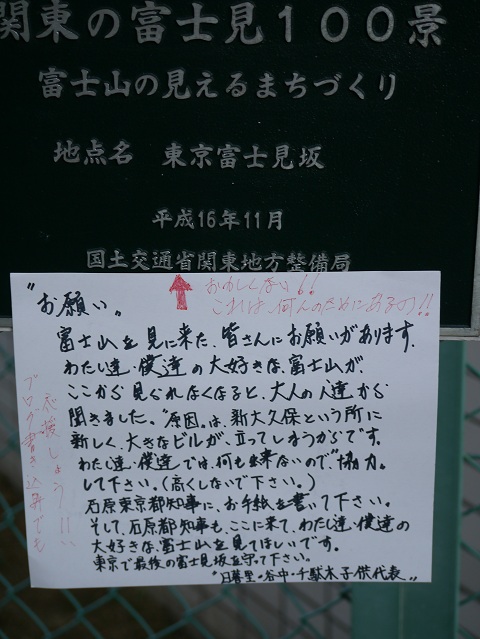 関東の富士見100景
富士山の見えるまちづくり
地点名　東京富士見坂
平成16年11月
国土交通省関東地方整備局
おかしくない!!
これは、何んのためにあるの!!
"お願い"
富士山を見に来た、皆さんにお願いがあります。
わたし達・僕達の大好きな、富士山が、
ここから見られなくなると、大人の人達から
聞きました。"原因"は、新大久保という所に
新しく、大きなビルが、立ってしまうからです。
わたし達・僕達では、何も出来ないので、"協力"
して下さい。(高くしないで下さい。)
石原東京都知事に、お手紙を書いて下さい。
そして、石原都知事も、ここに来て、わたし達・僕達の
大好きな、富士山を見てほしいです。
東京で最後の富士見坂を守って下さい。
"日暮里・谷中・千駄木子供代表"
応援しよう!!
ブログ書き込みでも